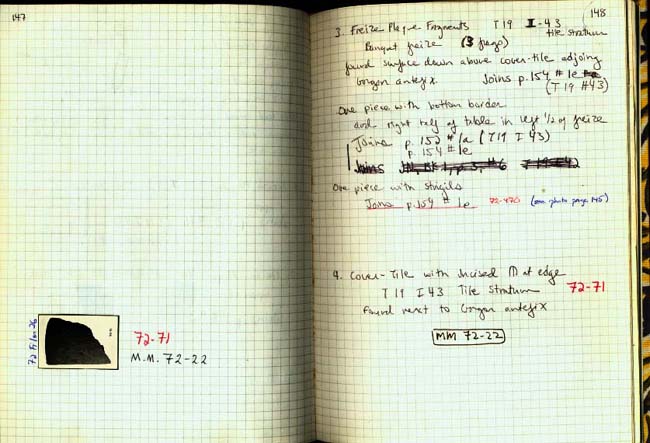 147
72 Film 26
72-71
M.M. 72-22
148
3. Freize Plaque Fragments T 19 I-43
tile stratum
Banquet freize (3 frags)
found surface down above cover-tile adjoing
Gorgon antefix. Joins p.154 # 1e
(T 19 #43)
One piece with bottom border
and right half of table in left 1/2 of freize
Joins p. 152 # 1a (T19 I 43)
p. 154 # 1e
Joins
One piece with strigils
Joins p. 154 # 1e 72-470 (see photo page 145)
4. Cover-Tile with incised M at edge
T 19 I 43 Tile Stratum 72-71
Found next to Gorgon antefix
MM 72-22